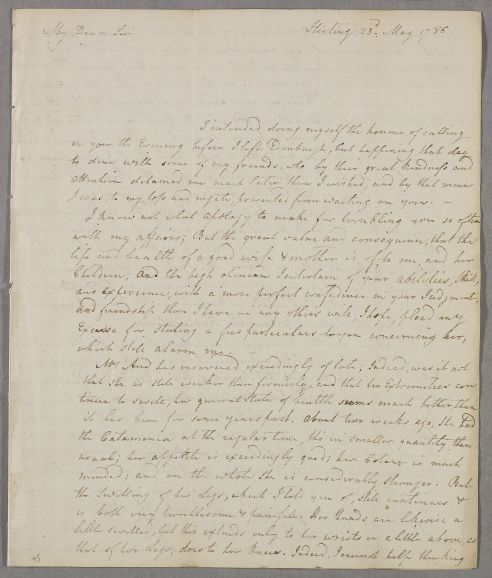 My Dear Sir Stirling 23d. May 1786
I intended doing myself the honour of calling
on you the Evening before I left Edinburgh, but happening that day
to dine with some of my friends, who by their great kindness and
attention detained me much later than I wished, and by that means
I was, to my loss and regrete, prevented from waiting on you. —
I know not what apology to make for troubling you so often
with my affairs; But the great value and consequence, that the
life and health of a good wife & mother is of to me, and her
Children; and the high opinion I entertain of your abilities, skill,
and experience, with a more perfect confidence in your Judgment,
and friendship than I have in any others will, I hope, plead my
Excuse for stating a few particulars to you concerning her,
which still alarm me.
Mrs. has recovered exceedingly of late; Indeed, was it not
that she is still weaker than formerly, and that her Extremities con
tinue to swell, her general State of health seems much better than
it has been for some years past. About two weeks ago, she had
the Catamenia at the regular time, tho in smaller quantity than
usual; her appetite is exceedingly good; her Colour is much
mended; and on the whole she is considerably stronger. But
the Swelling of her Legs, which I told you of, still continues &
is both very troublesome & painful. Her Hands are likewise a
little swelled, but this extends only to her wrists or a little above, as
that of her legs, does to her knees. Indeed, I cannot help thinking